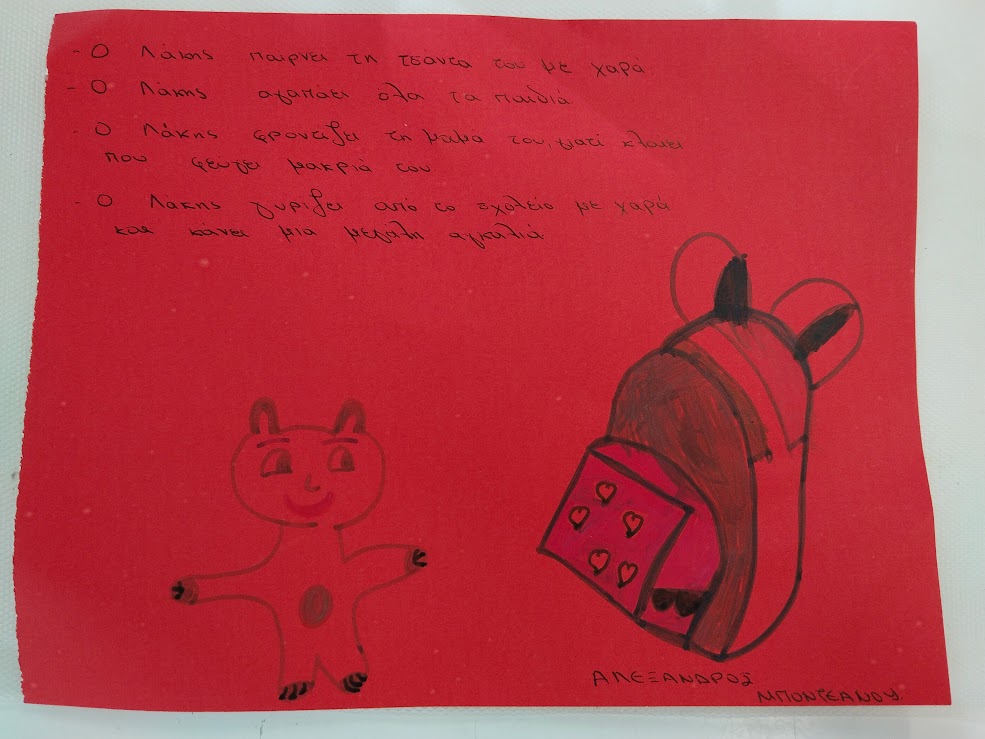 - Ο Λάκης παίρνει τη τσάντα του με χαρά
- Ο Λάκης αγαπάει όλα τα παιδιά
- Ο Λάκης φροντίζει τη μαμά του, γιατί κλαίει
που φεύγει μακριά του
- Ο Λάκης γυρίζει από το σχολείο με χαρά
και κάνει μια μεγάλη αγκαλιά
ΑΛΕΞΑΝΔΡΟΣ
ΜΠΟΝΤΣΑΝΟΥ